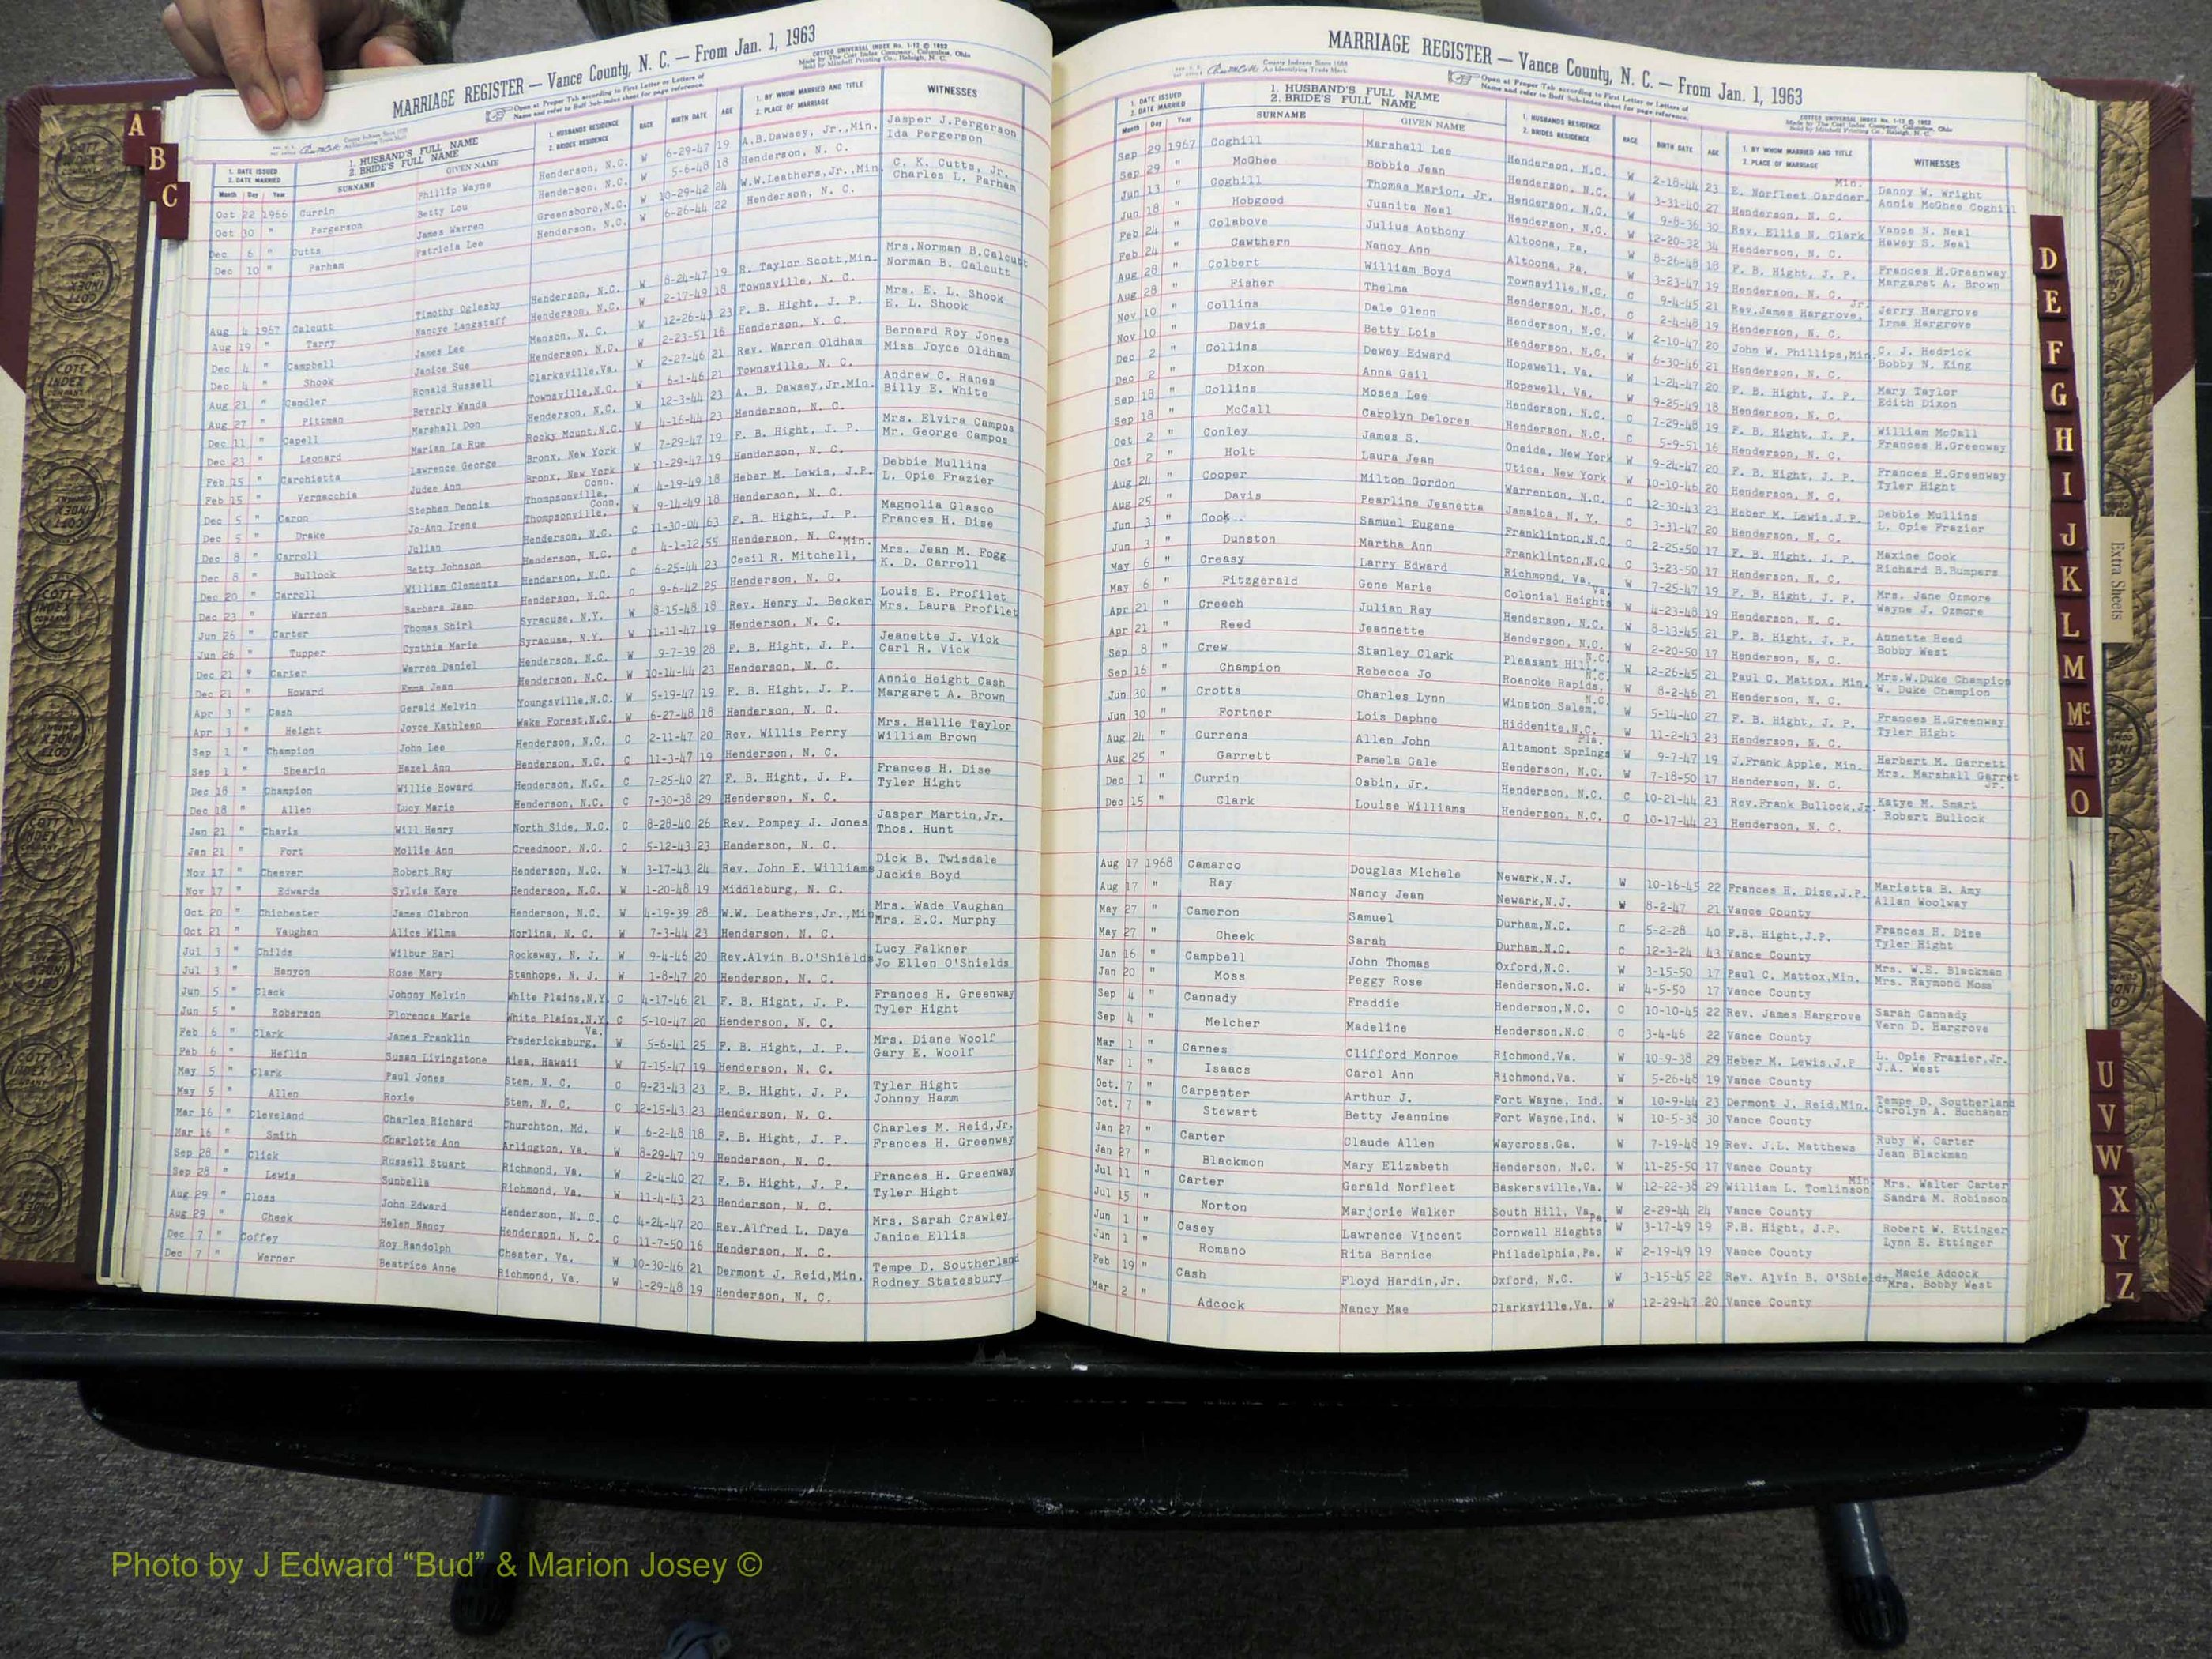 MARRIAGE REGISTER — Vance County, N. C. — From Jan. 1, 1963
COTTER UNIVERSAL INDEX No. 1-12 © 1952
Made by The Cott Index Company, Columbus, Ohio
Sold by Mitchell Printing Co., Raleigh, N. C.
Open at Proper Tab according to First Letter or Letters of
Name and refer to Buff Sub-Index sheet for page reference.
1. DATE ISSUED 2. DATE MARRIED
Month Day Year
1. HUSBAND'S FULL NAME
2. BRIDE'S FULL NAME
SURNAME GIVEN NAME
1. HUSBANDS RESIDENCE 2. BRIDES RESIDENCE
RACE BIRTH DATE AGE
1. BY WHOM MARRIED AND TITLE 2. PLACE OF MARRIAGE
WITNESSES
Oct 22 1966 Currin Phillip Wayne Henderson, N.C. W 6-29-47 19 A.B.Dawsey, Jr.,Min. Jasper J.Pergerson
Oct 30 " Pergerson Betty Lou Henderson, N.C. W 5-6-48 18 Henderson, N. C. Ida Pergerson
Dec 6 " Cutts James Warren Greensboro,N.C. W 10-29-42 24 W.W.Leathers,Jr.,Min. C. K. Cutts, Jr.
Dec 10 " Parham Patricia Lee Henderson, N.C. W 6-26-44 22 Henderson, N. C. Charles L. Parham
Aug 4 1967 Calcutt Timothy Oglesby Henderson, N.C. W 8-24-47 19 R. Taylor Scott,Min. Mrs.Norman B.Calcutt
Aug 19 " Terry Nancye Langstaff Henderson, N.C. W 2-17-49 18 Townsville, N. C. Norman B. Calcutt
Dec 4 " Campbell James Lee Manson, N. C. W 12-26-43 23 F. B. Hight, J. P. Mrs. E. L. Shook
Dec 4 " Shook Janice Sue Henderson, N.C. W 2-23-51 16 Henderson, N. C. E. L. Shook
Aug 21 " Candler Ronald Russell Clarksville,Va. W 2-27-46 21 Rev. Warren Oldham Bernard Roy Jones
Aug 27 " Pittman Beverly Wanda Townsville,N.C. W 6-1-46 21 Townsville, N. C. Miss Joyce Oldham
Dec 11 " Capell Marshall Don Henderson, N.C. W 12-3-44 23 A. B. Dawsey,Jr.Min. Andrew C. Ranes
Dec 23 " Leonard Marian La Rue Rocky Mount,N.C. W 4-16-44 23 Henderson, N. C. Billy E. White
Feb 15 " Carchietta Lawrence George Bronx, New York W 7-29-47 19 F. B. Hight, J. P. Mrs. Elvira Campos
Feb 15 " Vernacchia Judee Ann Bronx, New York W 11-29-47 19 Henderson, N. C. Mr. George Campos
Dec 5 " Caron Stephen Dennis Thompsonville, Conn. W 4-19-49 18 Heber M. Lewis, J.P. Debbie Mullins
Dec 5 " Drake Jo-Ann Irene Thompsonville, Conn. W 9-14-49 18 Henderson, N. C. L. Opie Frazier
Dec 8 " Carroll Julian Henderson, N.C. C 11-30-04 63 F. B. Hight, J. P. Magnolia Glasco
Dec 8 " Bullock Betty Johnson Henderson, N.C. C 4-1-12 55 Henderson, N. C. Frances H. Dise
Dec 20 " Carroll William Clements Henderson, N.C. C 6-25-44 23 Cecil R. Mitchell, Min. Mrs. Jean M. Fogg
Dec 23 " Warren Barbara Jean Henderson, N.C. C 9-6-42 25 Henderson, N. C. K. D. Carroll
Jun 26 " Carter Thomas Shirl Syracuse, N.Y. W 8-15-48 18 Rev. Henry J. Becker Louis E. Profilet
Jun 26 " Tupper Cynthia Marie Syracuse, N.Y. W 11-11-47 19 Henderson, N. C. Mrs. Laura Profilet
Dec 21 " Carter Warren Daniel Henderson, N.C. W 9-7-39 28 F. B. Hight, J. P. Jeanette J. Vick
Dec 21 " Howard Emma Jean Henderson, N.C. W 10-14-44 23 Henderson, N. C. Carl R. Vick
Apr 3 " Cash Gerald Melvin Youngsville,N.C. W 5-19-47 19 F. B. Hight, J. P. Annie Height Cash
Apr 3 " Height Joyce Kathleen Wake Forest,N.C. W 6-27-48 18 Henderson, N. C. Margaret A. Brown
Sep 1 " Champion John Lee Henderson, N.C. C 2-11-47 20 Rev. Willis Perry Mrs. Hallie Taylor
Sep 1 " Shearin Hazel Ann Henderson, N.C. C 11-3-47 19 Henderson, N. C. William Brown
Dec 18 " Champion Willie Howard Henderson, N.C. C 7-25-40 27 F. B. Hight, J. P. Frances H. Dise
Dec 18 " Allen Lucy Marie Henderson, N.C. C 7-30-38 29 Henderson, N. C. Tyler Hight
Jan 21 " Chavis Will Henry North Side, N.C. C 8-28-40 26 Rev. Pompey J. Jones Jasper Martin,Jr.
Jan 21 " Fort Mollie Ann Creedmoor, N.C. C 5-12-43 23 Henderson, N. C. Thos. Hunt
Nov 17 " Cheever Robert Ray Henderson, N.C. W 3-17-43 24 Rev. John E. Williams Dick B. Twisdale
Nov 17 " Edwards Sylvia Kaye Henderson, N.C. W 1-20-48 19 Middleburg, N. C. Jackie Boyd
Oct 20 " Chichester James Clabron Henderson, N.C. W 4-19-39 28 W.W. Leathers,Jr.,Min Mrs. Wade Vaughan
Oct 21 " Vaughan Alice Wilma Norlina, N. C. W 7-3-44 23 Henderson, N. C. Mrs. E.C. Murphy
Jul 3 " Childs Wilbur Earl Rockaway, N. J. W 9-4-46 20 Rev.Alvin B.O'Shields Lucy Falkner
Jul 3 " Hanyon Rose Mary Stanhope, N. J. W 1-8-47 20 Henderson, N. C. Jo Ellen O'Shields
Jun 5 " Clack Johnny Melvin White Plains,N.Y. C 4-17-46 21 F. B. Hight, J. P. Frances H. Greenway
Jun 5 " Roberson Florence Marie White Plains,N.Y. C 5-10-47 20 Henderson, N. C. Tyler Hight
Feb 6 " Clark James Franklin Fredericksburg, Va. W 5-6-41 25 F. B. Hight, J. P. Mrs. Diane Woolf
Feb 6 " Heflin Susan Livingstone Aiea, Hawaii W 7-15-47 19 Henderson, N. C. Gary E. Woolf
May 5 " Clark Paul Jones Stem, N. C. C 9-23-43 23 F. B. Hight, J. P. Tyler Hight
May 5 " Allen Roxie Stem, N. C. C 12-15-43 23 Henderson, N. C. Johnny Hamm
Mar 16 " Cleveland Charles Richard Churchton, Md. W 6-2-48 18 F. B. Hight, J. P. Charles M. Reid,Jr.
Mar 16 " Smith Charlotte Ann Arlington, Va. W 8-29-47 19 Henderson, N. C. Frances H. Greenway
Sep 28 " Click Russell Stuart Richmond, Va. W 2-4-40 27 F. B. Hight, J. P. Frances H. Greenway
Sep 28 " Lewis Sunbella Richmond, Va. W 11-4-43 23 Henderson, N. C. Tyler Hight
Aug 29 " Closs John Edward Henderson, N. C. C 4-24-47 20 Rev.Alfred L. Daye Mrs. Sarah Crawley
Aug 29 " Cheek Helen Nancy Henderson, N. C. C 11-7-50 16 Henderson, N. C. Janice Ellis
Dec 7 " Coffey Roy Randolph Chester, Va. W 10-30-46 21 Dermont J. Reid,Min. Tempe D. Southerland
Dec 7 " Werner Beatrice Anne Richmond, Va. W 1-29-48 19 Henderson, N. C. Rodney Statesbury
MARRIAGE REGISTER — Vance County, N. C. — From Jan. 1, 1963
County Indexes Since 1888
An Identifying Trade Mark
Open at Proper Tab according to First Letter or Letters of
Name and refer to Buff Sub-Index sheet for page reference.
COTTER UNIVERSAL INDEX No. 1-12 © 1952
Made by The Cott Index Company, Columbus, Ohio
Sold by Mitchell Printing Co., Raleigh, N. C.
1. DATE ISSUED 2. DATE MARRIED
Month Day Year
1. HUSBAND'S FULL NAME
2. BRIDE'S FULL NAME
SURNAME GIVEN NAME
1. HUSBANDS RESIDENCE 2. BRIDES RESIDENCE
RACE BIRTH DATE AGE
1. BY WHOM MARRIED AND TITLE 2. PLACE OF MARRIAGE
WITNESSES
Sep 29 1967 Coghill Marshall Lee Henderson, N.C. W 2-18-44 23 E. Norfleet Gardner, Min. Danny W. Wright
Sep 29 " McGhee Bobbie Jean Henderson, N.C. W 3-31-40 27 Henderson, N. C. Annie McGhee Coghill
Jun 13 " Coghill Thomas Marion, Jr. Henderson, N.C. W 9-8-36 30 Rev. Ellis N. Clark Vance N. Neal
Jun 18 " Hobgood Juanita Neal Henderson, N.C. W 12-20-32 34 Henderson, N. C. Hawey S. Neal
Feb 24 " Colabove Julius Anthony Altoona, Pa. W 8-26-48 18 F. B. Hight, J. P. Frances H.Greenway
Feb 24 " Cawthern Nancy Ann Altoona, Pa. W 3-23-47 19 Henderson, N. C. Margaret A. Brown
Aug 28 " Colbert William Boyd Townsville,N.C. C 9-4-45 21 Rev.James Hargrove, Jr. Jerry Hargrove
Aug 28 " Fisher Thelma Henderson, N.C. C 2-4-48 19 Henderson, N. C. Irma Hargrove
Nov 10 " Collins Dale Glenn Henderson, N.C. W 2-10-47 20 John W. Phillips,Min. C. J. Hedrick
Nov 10 " Davis Betty Lois Henderson, N.C. W 6-30-46 21 Henderson, N. C. Bobby N. King
Dec 2 " Collins Dewey Edward Hopewell, Va. W 1-24-47 20 F. B. Hight, J. P. Mary Taylor
Dec 2 " Dixon Anna Gail Hopewell, Va. W 9-25-49 18 Henderson, N. C. Edith Dixon
Sep 18 " Collins Moses Lee Henderson, N.C. C 7-29-48 19 F. B. Hight, J. P. William McCall
Sep 18 " McCall Carolyn Delores Henderson, N.C. C 5-9-51 16 Henderson, N. C. Frances H.Greenway
Oct 2 " Conley James S. Oneida, New York W 9-24-47 20 F. B. Hight, J. P. Frances H.Greenway
Oct 2 " Holt Laura Jean Utica, New York W 10-10-46 20 Henderson, N. C. Tyler Hight
Aug 24 " Cooper Milton Gordon Warrenton, N.C. C 12-30-43 23 Heber M. Lewis,J.P. Debbie Mullins
Aug 25 " Davis Pearline Jeanetta Jamaica, N. Y. C 3-31-47 20 Henderson, N. C. L. Opie Frazier
Jun 3 " Cook Samuel Eugene Franklinton,N.C. C 2-25-50 17 F. B. Hight, J. P. Maxine Cook
Jun 3 " Dunston Martha Ann Franklinton,N.C. C 3-23-50 17 Henderson, N. C. Richard B.Bumpers
May 6 " Creasy Larry Edward Richmond, Va. W 7-25-47 19 F. B. Hight, J. P. Mrs. Jane Ozmore
May 6 " Fitzgerald Gene Marie Colonial Heights Va. W 4-23-48 19 Henderson, N. C. Wayne J. Ozmore
Apr 21 " Creech Julian Ray Henderson, N.C. W 8-13-45 21 F. B. Hight, J. P. Annette Reed
Apr 21 " Reed Jeannette Henderson, N.C. W 2-20-50 17 Henderson, N. C. Bobby West
Sep 8 " Crew Stanley Clark Pleasant Hill, N.C. W 12-26-45 21 Paul C. Mattox, Min. Mrs.W.Duke Champion
Sep 16 " Champion Rebecca Jo Roanoke Rapids, N.C. W 8-2-46 21 Henderson, N. C. W. Duke Champion
Jun 30 " Crotts Charles Lynn Winston Salem, N.C. W 5-14-40 27 F. B. Hight, J. P. Frances H.Greenway
Jun 30 " Fortner Lois Daphne Hiddenite,N.C. W 11-2-43 23 Henderson, N. C. Tyler Hight
Aug 24 " Currens Allen John Altamont Springs Fla. W 9-7-47 19 J.Frank Apple, Min. Herbert M. Garrett
Aug 25 " Garrett Pamela Gale Henderson, N.C. W 7-18-50 17 Henderson, N. C. Mrs. Marshall Garret
Dec 1 " Currin Osbin, Jr. Henderson, N.C. C 10-21-44 23 Rev.Frank Bullock,Jr. Katye M. Smart
Dec 15 " Clark Louise Williams Henderson, N.C. C 10-17-44 23 Henderson, N. C. Robert Bullock Jr.
Aug 17 1968 Camarco Douglas Michele Newark,N.J. W 10-16-45 22 Frances H. Dise,J.P. Marietta B. Amy
Aug 17 " Ray Nancy Jean Newark,N.J. W 8-2-47 21 Vance County Allan Woolway
May 27 " Cameron Samuel Durham,N.C. C 5-2-28 40 F.B. Hight,J.P. Frances H. Dise
May 27 " Cheek Sarah Durham,N.C. C 12-3-24 43 Vance County Tyler Hight
Jan 16 " Campbell John Thomas Oxford,N.C. W 3-15-50 17 Paul C. Mattox,Min. Mrs. W.E. Blackman
Jan 20 " Moss Peggy Rose Henderson,N.C. W 4-5-50 17 Vance County Mrs. Raymond Moss
Sep 4 " Cannady Freddie Henderson,N.C. C 10-10-45 22 Rev. James Hargrove Sarah Cannady
Sep 4 " Melcher Madeline Henderson,N.C. C 3-4-46 22 Vance County Vern D. Hargrove
Mar 1 " Carnes Clifford Monroe Richmond,Va. W 10-9-38 29 Heber M. Lewis,J.P L. Opie Frazier,Jr.
Mar 1 " Isaacs Carol Ann Richmond,Va. W 5-26-48 19 Vance County J.A. West
Oct. 7 " Carpenter Arthur J. Fort Wayne, Ind. W 10-9-44 23 Dermont J. Reid,Min. Tempe D. Southerland
Oct. 7 " Stewart Betty Jeannine Fort Wayne,Ind. W 10-5-38 30 Vance County Carolyn A. Buchanan
Jan 27 " Carter Claude Allen Waycross,Ga. W 7-19-48 19 Rev. J.L. Matthews Ruby W. Carter
Jan 27 " Blackmon Mary Elizabeth Henderson, N.C. W 11-25-50 17 Vance County Jean Blackman
Jul 11 " Carter Gerald Norfleet Baskersville,Va. W 12-22-38 29 William L. Tomlinson Min Mrs. Walter Carter
Jul 15 " Norton Marjorie Walker South Hill, Va. W 2-29-44 24 Vance County Sandra M. Robinson
Jun 1 " Casey Lawrence Vincent Cornwell Hieghts Pa. W 3-17-49 19 F.B. Hight, J.P. Robert W. Ettinger
Jun 1 " Romano Rita Bernice Philadelphia,Pa. W 2-19-49 19 Vance County Lynn E. Ettinger
Feb 19 " Cash Floyd Hardin,Jr. Oxford, N.C. W 3-15-45 22 Rev. Alvin B. O'Shields Macie Adcock
Mar 2 " Adcock Nancy Mae Clarksville,Va. W 12-29-47 20 Vance County Mrs. Bobby West
A
B
C
D
E
F
G
H
I
J
K
L
M
Mc
N
O
U
V
W
X
Y
Z
Extra Sheets
COTT INDEX COMPANY
Photo by J Edward “Bud” & Marion Josey ©